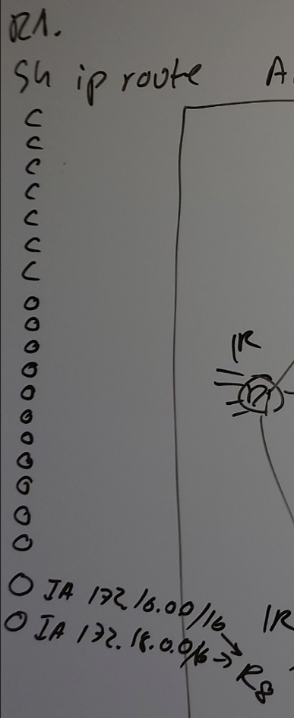 R1.
Sh ip route A
C
C
C
C
C
C
C
O
O
O
O
O
O
O
O
O
O
O
IR
O IA 172.16.0.0/16
O IA 172.18.0.0/16
→ R8
IR